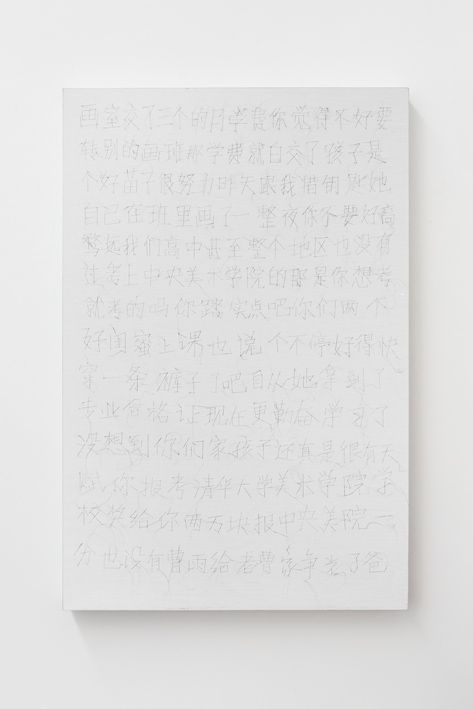 画室交了三个的月学费你觉得不好要
转别的画班那学费就白交了孩子是
个好苗子很努力昨天跟我借钥匙她
自己在班里画了一整夜你不要好高
骛远我们高中甚至整个地区也没有
过考上中央美术学院的那是你想考
就考的吗你踏实点吧你们两个
好闺蜜上课也说个不停好得快
穿一条裤子了吧自从她拿到了
专业合格证现在更勤奋学习了
没想到你们家孩子还真是很有天
赋你报考清华大学美术学院学
校奖给你两万块报中央美院一
分也没有曹雨给老曹家争光了爸